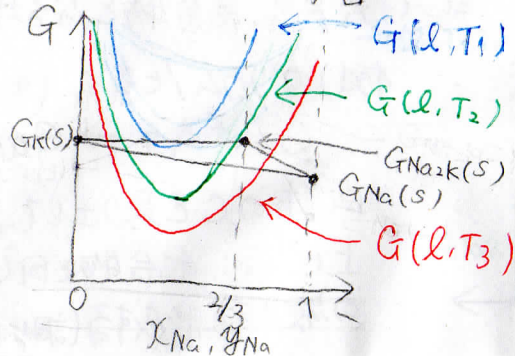 G
G(l,T₁)
G(l,T₂)
G_K(S)
G_Na₂K(S)
G_Na(S)
G(l,T₃)
0
2/3
1
x_Na, y_Na